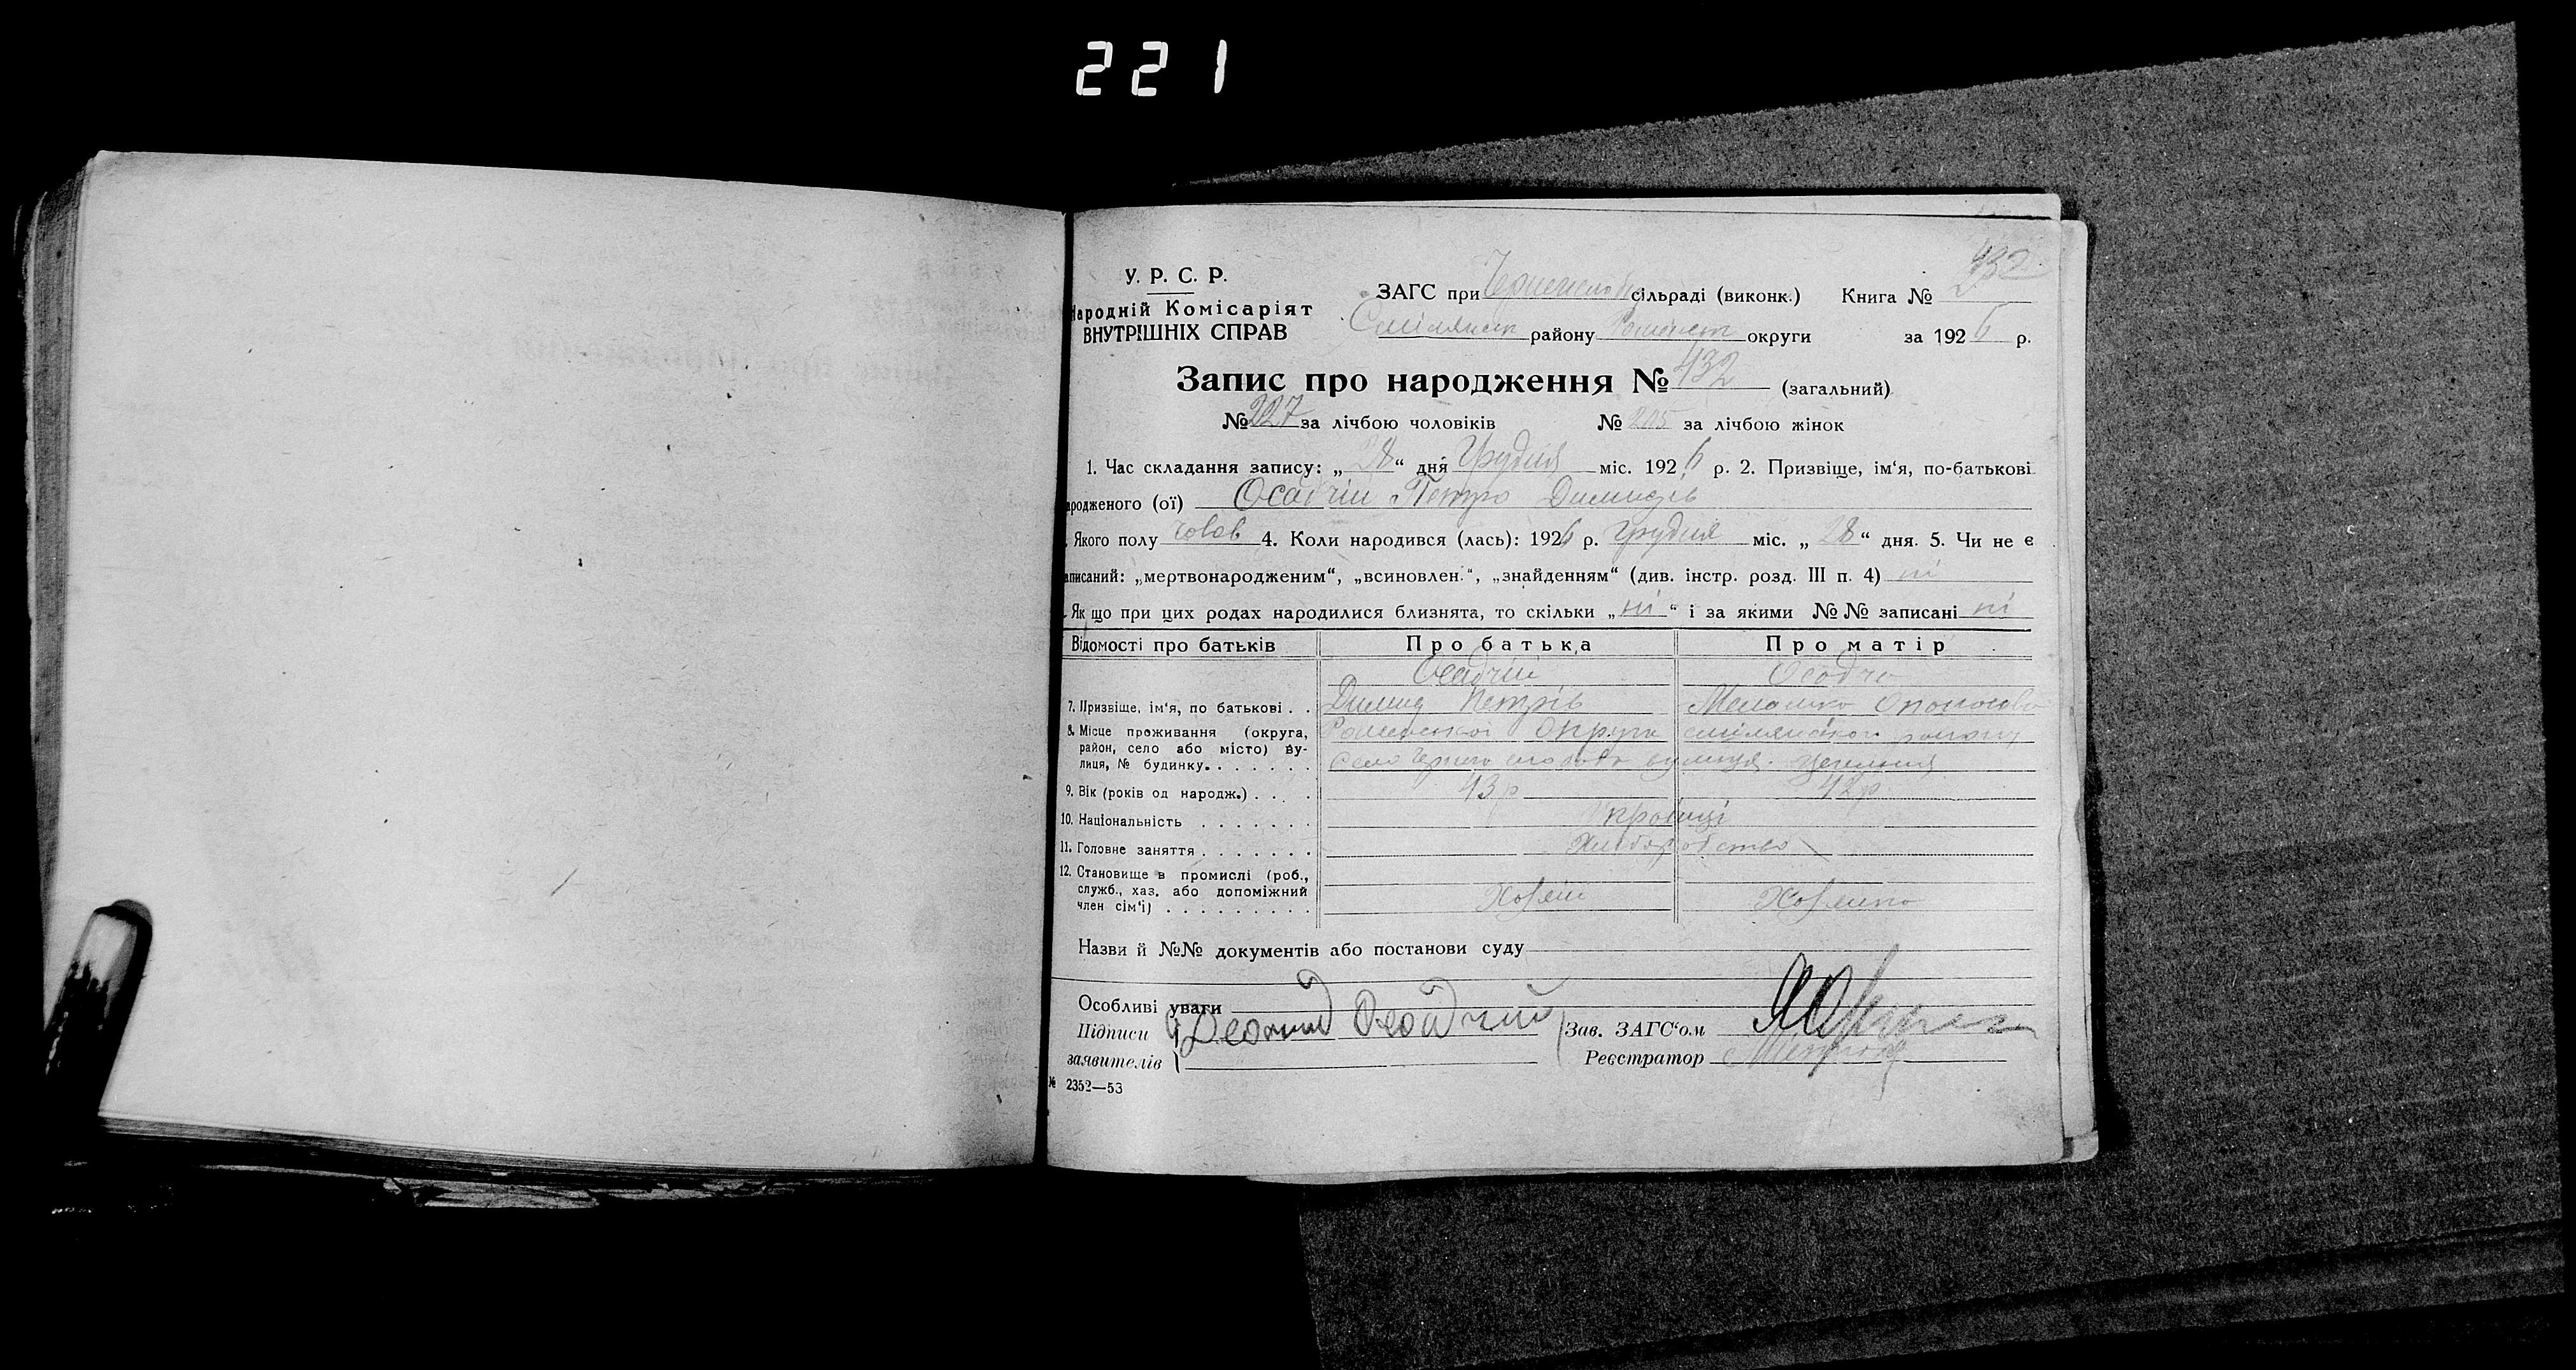 221
432
У. Р. С. Р.
Народній Комісаріят
ВНУТРІШНІХ СПРАВ
ЗАГС при сільраді (виконк.) Книга №
Смілянськ району Роменськ округи за 1926 р.
Запис про народження № 432 (загальний)
№ 227 за лічбою чоловіків № 205 за лічбою жінок
1. Час складання запису: „28“ дня Грудня міс. 1926 р. 2. Призвіще, ім‘я, по-батькові
народженого (ої) Осадчій Петро Димидів
Якого полу чолов 4. Коли народився (лась): 1926 р. грудня міс. „28“ дня. 5. Чи не є
записаний: „мертвонародженим“, „всиновлен.“, „знайденням“ (див. інстр. розд. III п. 4) ні
Як що при цих родах народилися близнята, то скільки „ні“ і за якими №№ записані ні
Відомості про батьків Про батька Про матір
Осадчій Осадча
7. Призвіще, ім‘я, по батькові . . Димид Петрів Меланка
8. Місце проживання (округа, Роменської округи смілянського району
район, село або місто) ву-
лиця, № будинку. . . . . . . село вулиця
9. Вік (років од народж.) . . . . 43 р 42 р
10. Національність . . . . . . . Українці
11. Головне заняття . . . . . . . Хліборобство
12. Становище в промислі (роб.,
служб., хаз. або допоміжний Хозяїн Хозяйка
член сім‘ї) . . . . . . . . .
Назви й №№ документів або постанови суду
Особливі уваги
Підписи Осадчий Зав. ЗАГС‘ом
заявителів Реєстратор
№ 2352—53